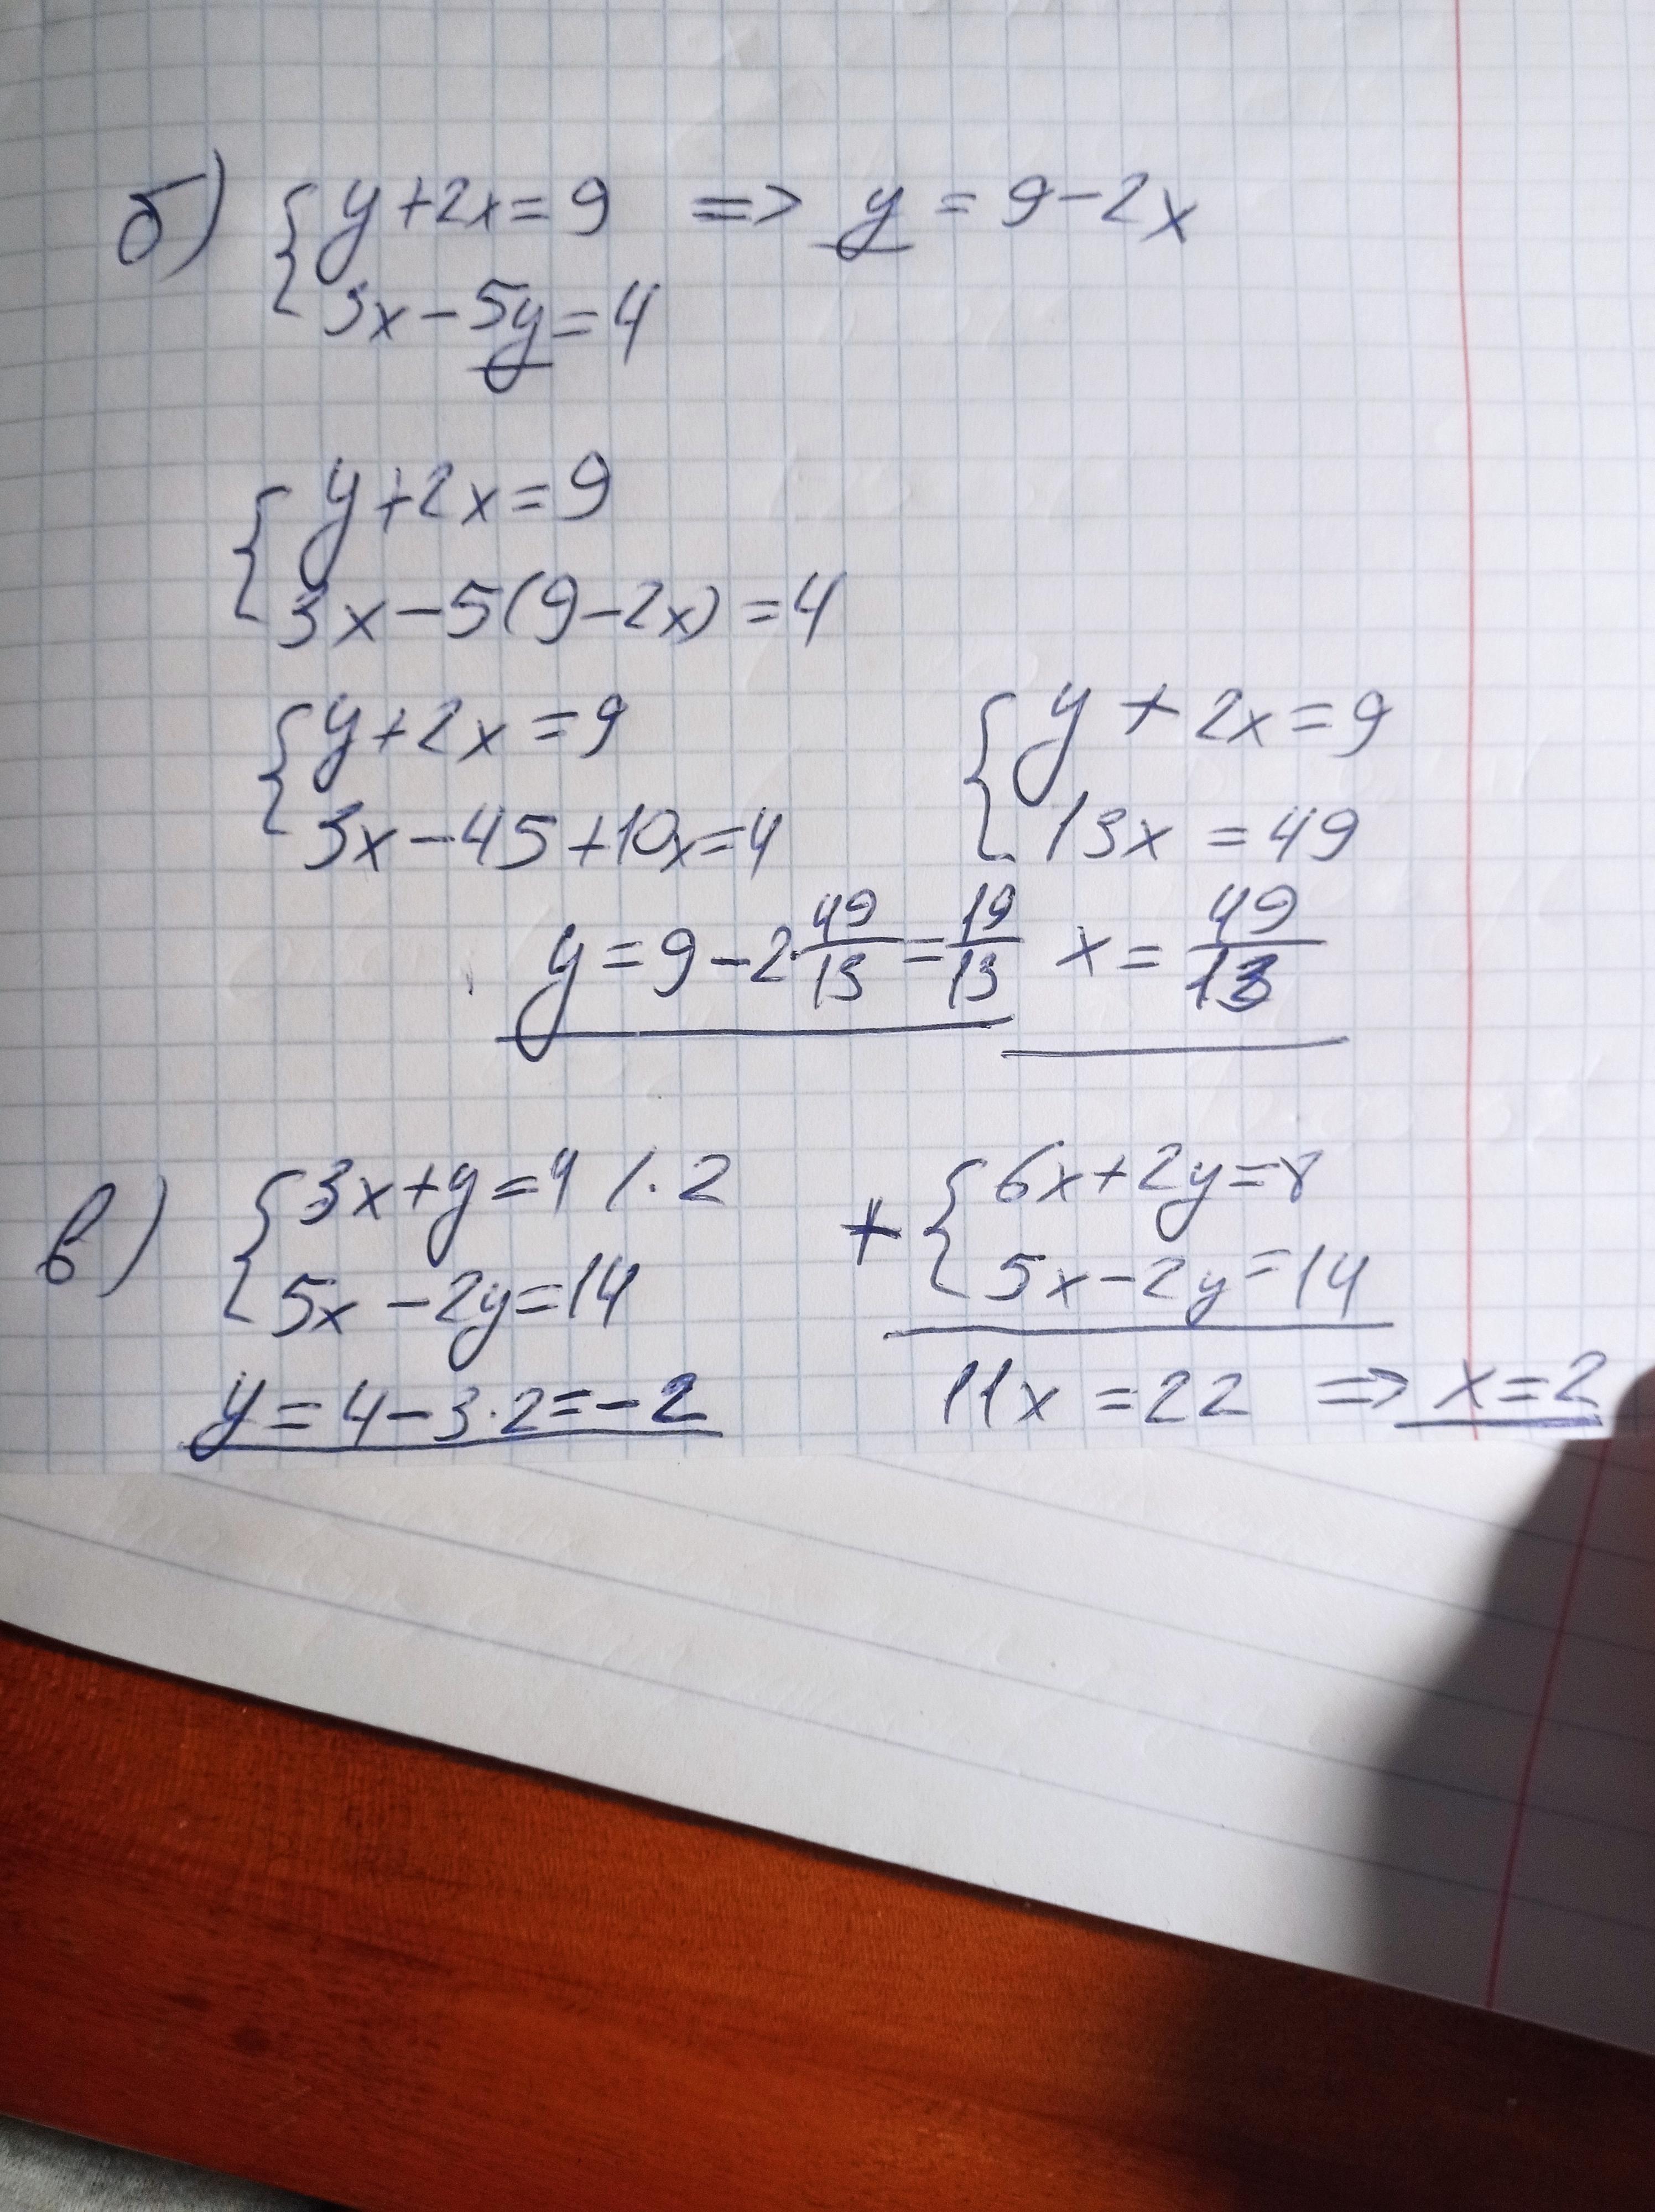 б) { y+2x=9 => y = 9-2x
3x-5y=4
{ y+2x=9
3x-5(9-2x)=4
{ y+2x=9
3x-45+10x=4
{ y+2x=9
13x=49
y=9-2·49/13=19/13 x=49/13
в) { 3x+y=4 /·2
5x-2y=14
+ { 6x+2y=8
5x-2y=14
y=4-3·2=-2
11x=22 => x=2